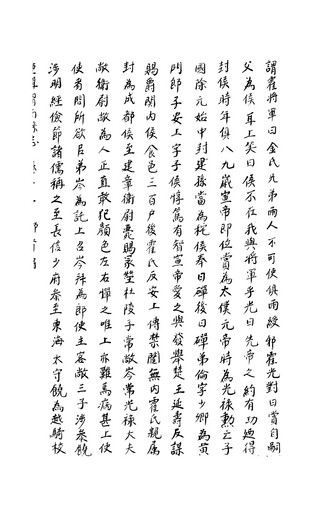 謂霍將軍曰金氏兄弟兩人不可使俱兩綬邪霍光對曰賞自嗣
父為侯耳上笑曰侯不在我與將軍乎光曰先帝之約有功迺得
封侯時年俱八九歲宣帝即位賞為太僕元帝時為光祿勲亡子
國除元始中封建孫當為秺侯奉日磾後日磾弟倫字少卿為黃
門郎子安上字子侯惇篤有智宣帝愛之與發舉楚王延壽反謀
賜爵關内侯食邑三百戶後霍氏反安上傳禁闥無内霍氏親属
封為成都侯至建章衛尉薨賜冢塋杜陵子常敞岑常光祿大夫
敞衛尉敞為人正直敢犯顏色左右憚之唯上亦難焉病甚上使
使者問所欲以弟岑為託上召岑拜為郎使主客敞三子涉參饒
涉明經儉節諸儒稱之至長信少府參至東海太守饒為越騎校